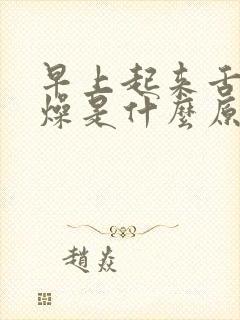 早上起来舌
燥是什麼原
趙焱